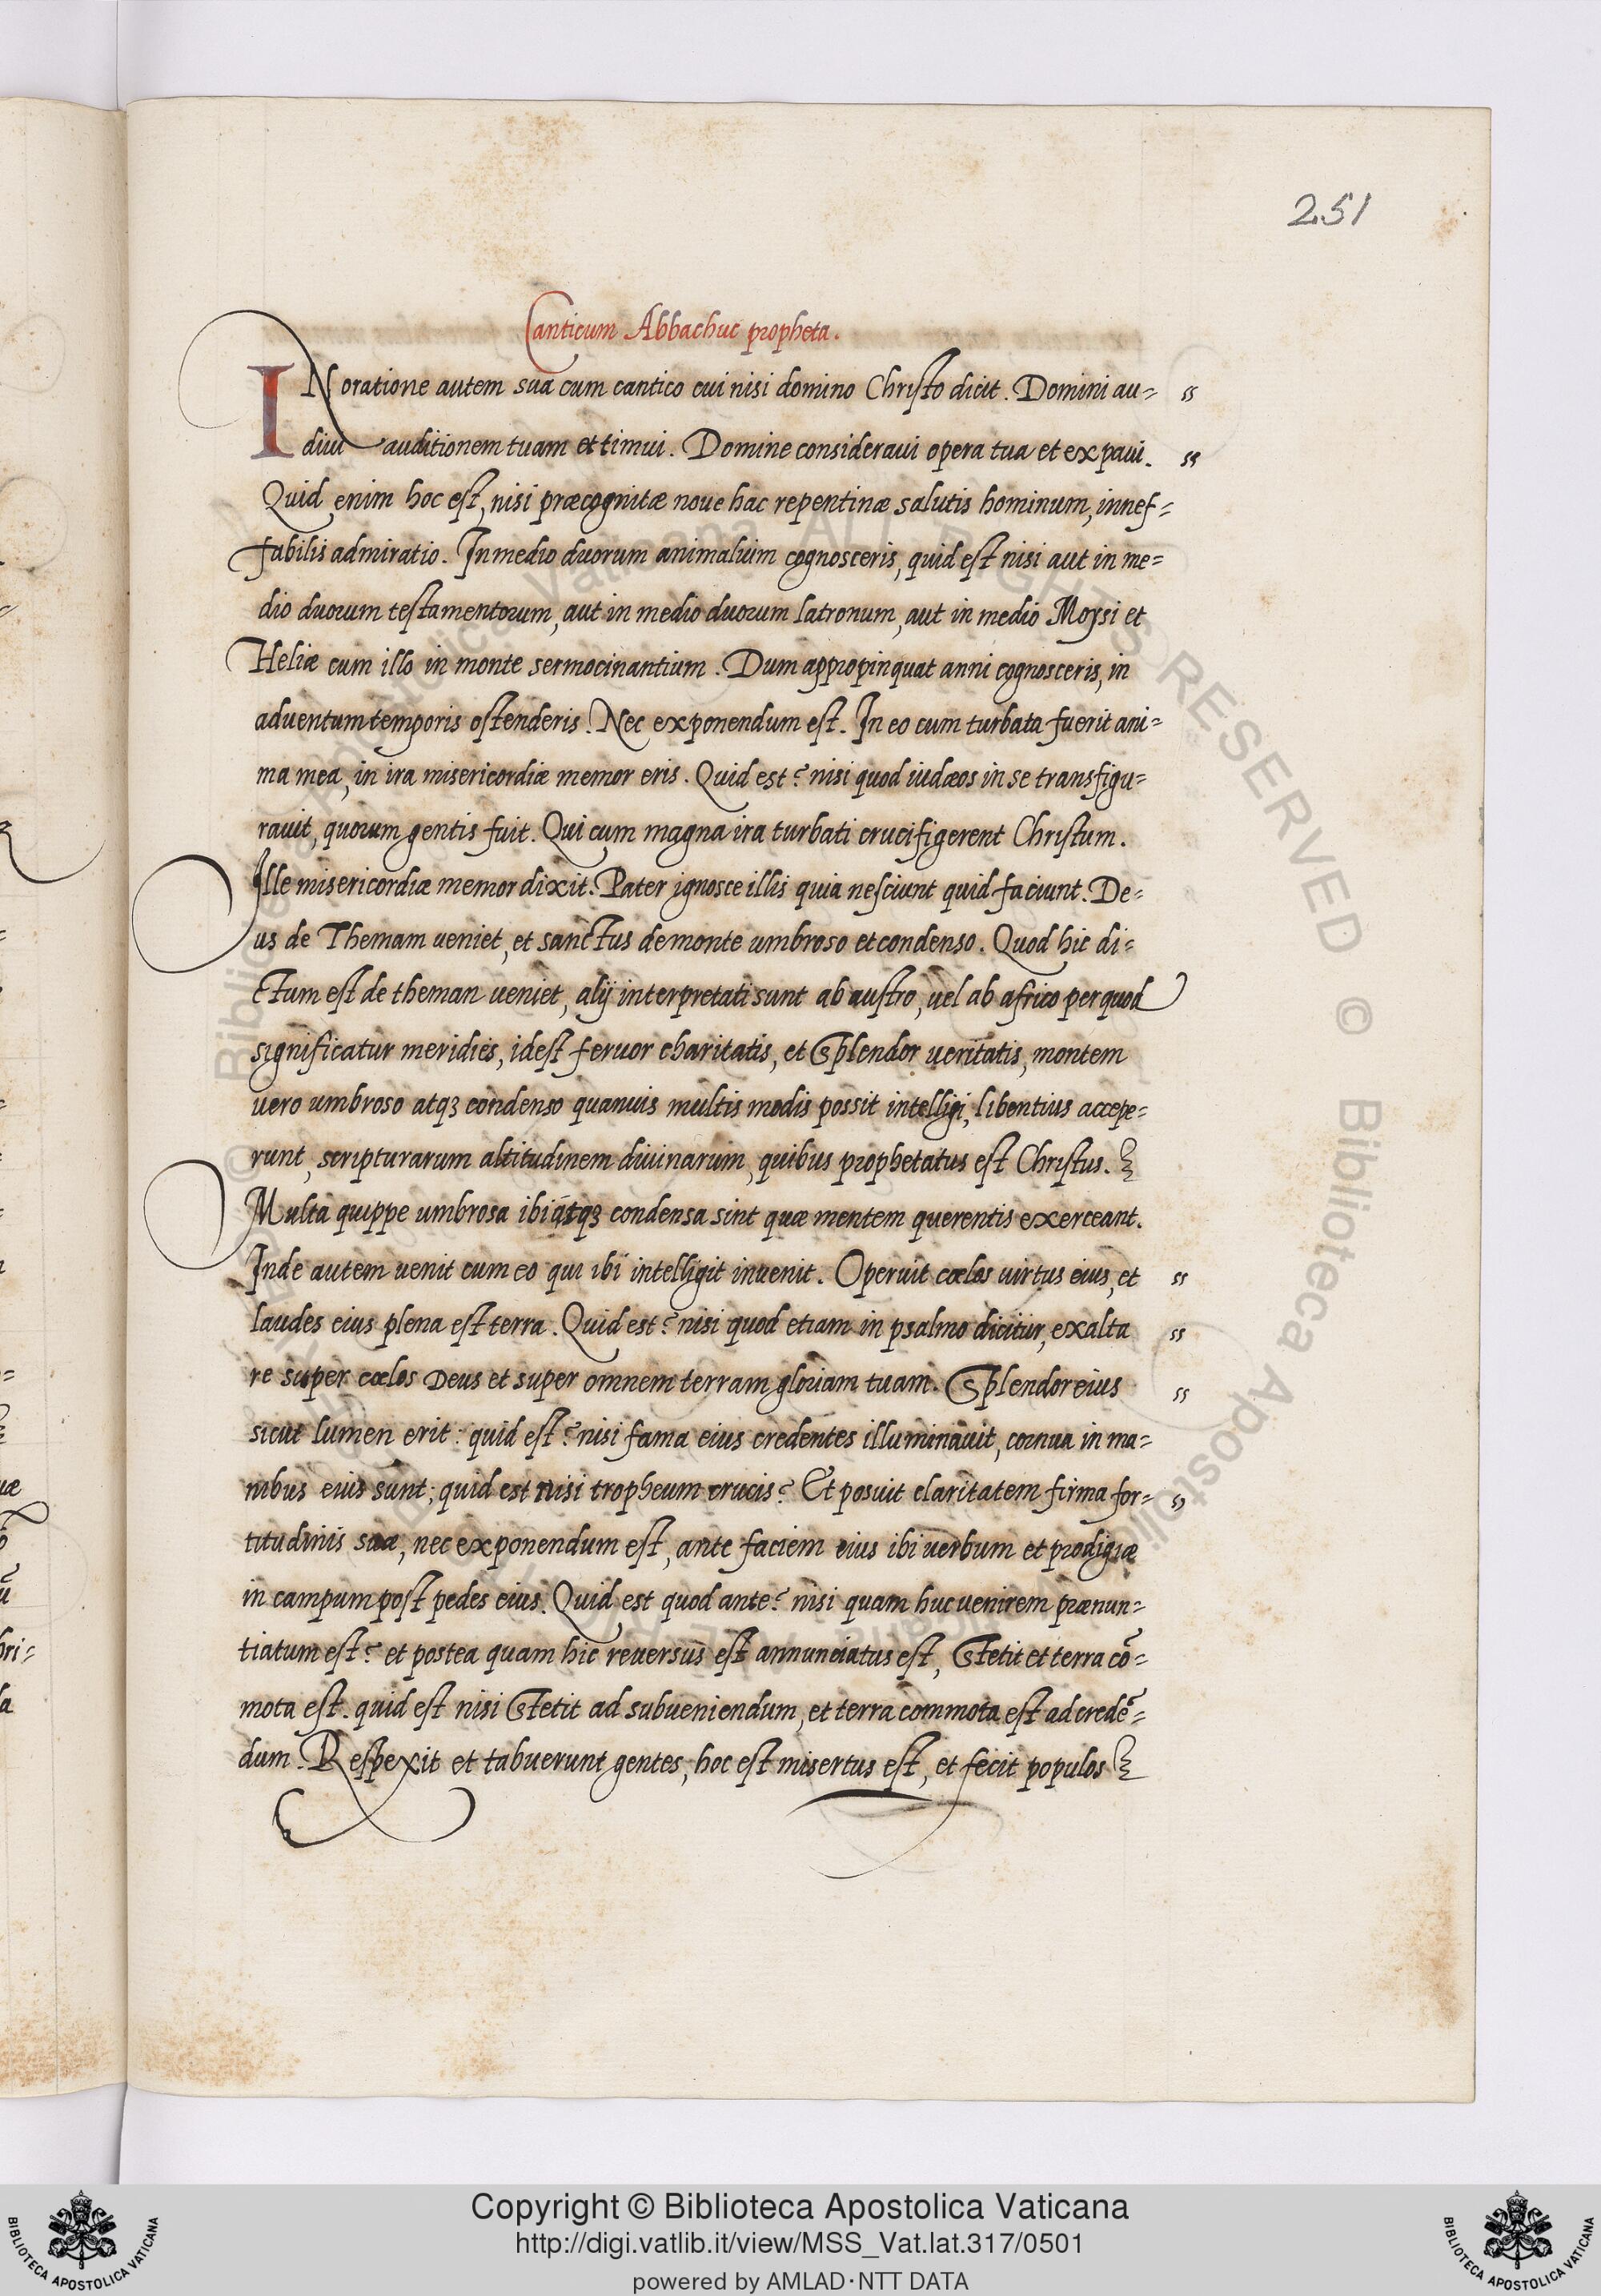 251
Canticum Abbachuc propheta.
IN oratione autem sua cum cantico cui nisi domino Christo dicit. Domini au=
diui auditionem tuam et timui. Domine consideraui opera tua et expaui.
Quid enim hoc est, nisi præcognitæ noue hac repentinæ salutis hominum, innef=
fabilis admiratio. In medio duorum animalium cognosceris, quid est nisi aut in me=
dio duorum testamentorum, aut in medio duorum latronum, aut in medio Moysi et
Heliæ cum illo in monte sermocinantium. Dum appropinquat anni cognosceris, in
aduentum temporis ostenderis. Nec exponendum est. In eo cum turbata fuerit ani=
ma mea, in ira misericordiæ memor eris. Quid est? nisi quod iudæos in se transfigu=
rauit, quorum gentis fuit. Qui cum magna ira turbati crucifigerent Christum.
Ille misericordiæ memor dixit. Pater ignosce illis quia nesciunt quid faciunt. De=
us de Themam ueniet, et sanctus de monte umbroso et condenso. Quod hic di=
ctum est de theman ueniet, alij interpretati sunt ab austro, uel ab africo per quod
significatur meridies, idest feruor charitatis, et Splendor ueritatis, montem
uero umbroso atqȝ condenso quanuis multis modis possit intelligi, libentius accepe=
runt, scripturarum altitudinem diuinarum, quibus prophetatus est Christus.
Multa quippe umbrosa ibi atqȝ condensa sint quæ mentem querentis exerceant.
Inde autem uenit cum eo qui ibi intelligit inuenit. Operuit cœlos uirtus eius, et
laudes eius plena est terra. Quid est? nisi quod etiam in psalmo dicitur, exalta
re super cœlos Deus et super omnem terram gloriam tuam. Splendor eius
sicut lumen erit: quid est? nisi fama eius credentes illuminauit, cornua in ma=
nibus eius sunt; quid est nisi tropheum crucis? Et posuit claritatem firma for=
titudinis sua, nec exponendum est, ante faciem eius ibi uerbum et prodigiæ
in campum post pedes eius. Quid est quod ante? nisi quam huc uenirem prænun=
tiatum est? et postea quam hic reuersus est annunciatus est, Stetit et terra cō=
mota est. quid est nisi Stetit ad subueniendum, et terra commota est ad credē=
dum. Respexit et tabuerunt gentes, hoc est misertus est, et fecit populos
Copyright © Biblioteca Apostolica Vaticana
http://digi.vatlib.it/view/MSS_Vat.lat.317/0501
powered by AMLAD·NTT DATA
BIBLIOTECA APOSTOLICA VATICANA
BIBLIOTECA APOSTOLICA VATICANA